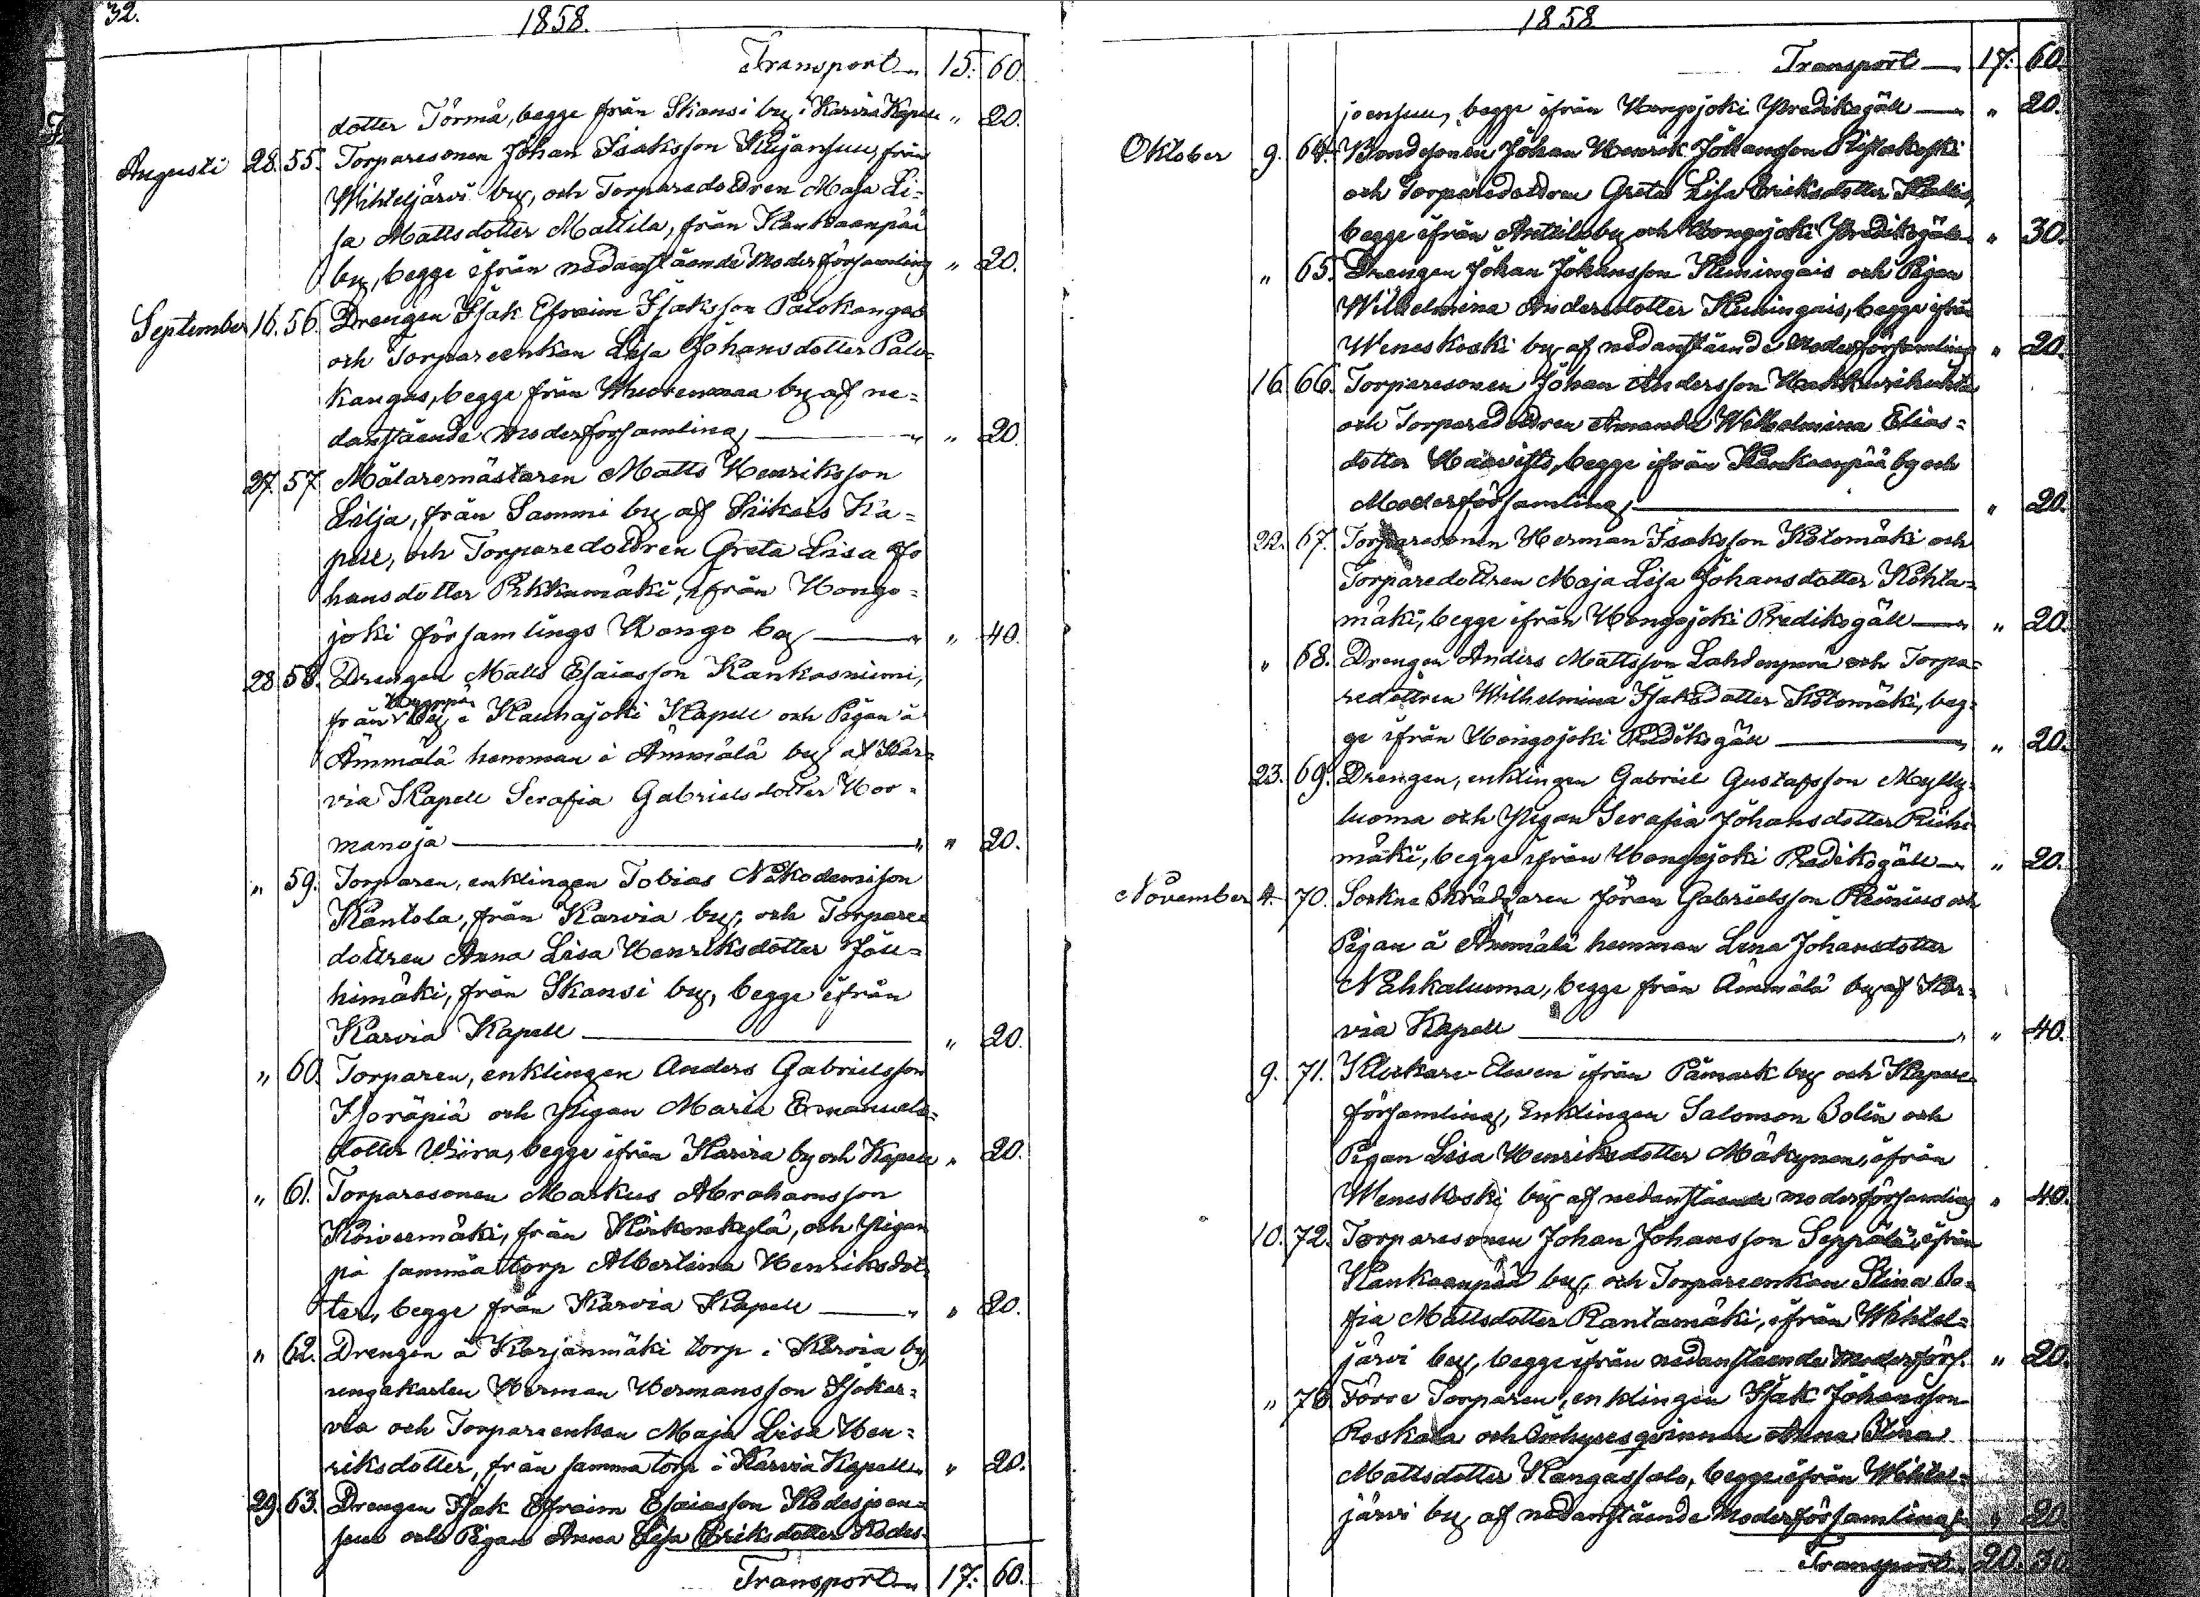 32.
1858.
Transport 15. 60.
dotter Törmä, begge från Skansi by i Karvia Kapell " 20.
Augusti 28. 55. Torparesonen Johan Isaksson Kujansuu, från
Wihteljärvi by, och Torparedottren Maja Li=
sa Mattsdotter Mattila, från Kankaanpää
by, begge ifrån nedanstående Moderförsamling " 20.
September 16. 56. Drengen Isak Efraim Isaksson Palokangas
och Torpareenkan Lisa Johansdotter Palo=
kangas, begge från Wuorenmaa by af ne=
danstående Moderförsamling " 20
27. 57. Målaremästaren Matts Henriksson
Lilja, från Sammi by af Siikais Ka=
pell, och Torparedottren Greta Lisa Jo
hansdotter Pikkumäki, ifrån Hongo=
joki församlings Hongo by " 40.
28. 58. Drengen Matts Esaiasson Kankasniemi,
från by i Kauhajoki Kapell och Pigan å
Ämmälä hemman i Ämmälä by af Kar=
via Kapell Serafia Gabrielsdotter Hor=
manoja " 20.
" 59. Torparen, enklingen Tobias Nikodemisson
Kantola, från Karvia by, och Torpare
dottren Anna Lisa Henriksdotter Jou=
himäki, från Skansi by, begge ifrån
Karvia Kapell " 20.
" 60. Torparen, enklingen Anders Gabrielsson
Isoräpiä och Pigan Maria Emanuels=
dotter Wiira, begge ifrån Karvia by och Kapell " 20.
" 61. Torparesonen Markus Abrahamsson
Koivermäki, från Kirkonkylä, och Pigan
på samma torp Albertina Henriksdot=
ter, begge från Karvia Kapell " 20.
" 62. Drengen å Karjanmäki torp i Karvia by,
ungakarlen Herman Hermansson Isokar=
via och Torpareenkan Maja Lisa Hen=
riksdotter, från samma torp i Karvia Kapell " 20.
29. 63. Drengen Isak Efraim Esaiasson Kodesjoen=
suu och Pigan Anna Lisa Eriksdotter Kodes=
Transport 17. 60.
1858
Transport 17. 60.
joensuu, begge ifrån Hongojoki Predikogäll " 20.
Oktober 9. 64. Bondesonen Johan Henrik Johansson Ristakoski
och Torparedottren Greta Lisa Eriksdotter Kallio,
begge ifrån Anttila by och Hongojoki Predikogäll " 30.
" 65. Drengen Johan Johansson Kuningais och Pigan
Wilhelmina Andersdotter Kuningais, begge ifrån
Weneskoski by af nedanstående Moderförsamling " 20.
16. 66. Torparesonen Johan Andersson
och Torparedottren Amanda Wilhelmina Elias=
dotter Haavisto, begge ifrån Kankaanpää by och
Moderförsamling " 20.
22. 67. Torparesonen Herman Isaksson Kotomäki och
Torparedottren Maja Lisa Johansdotter Kohta=
mäki, begge ifrån Hongojoki Predikogäll " 20.
" 68. Drengen Anders Mattsson Lahdenperä och Torpa=
redottren Wilhelmina Isaksdotter Kotomäki, beg=
ge ifrån Hongojoki Predikogäll " 20.
23. 69. Drengen, enklingen Gabriel Gustafsson Mylly=
luoma och Pigan Serafia Johansdotter Riihi
mäki, begge ifrån Hongojoki Predikogäll " 20.
November 4. 70. Sockne Skräddaren Jöran Gabrielsson Reinius och
Pigan å Ämmälä hemman Lena Johansdotter
Nahkaluoma, begge från Ämmälä by af Kar=
via Kapell " 40.
9. 71. Klockare-Eleven ifrån Påmark by och Kapell
församling, Enklingen Salomon Bolin och
Pigan Lisa Henriksdotter Mäkynen, ifrån
Weneskoski by af nedanstående moderförsamling " 40.
10. 72. Torparesonen Johan Johansson Seppälä, ifrån
Kankaanpää by, och Torpareenkan Stina So=
fia Mattsdotter Rantamäki, ifrån Wihtel=
järvi by, begge ifrån nedanstående Moderförs. " 20.
" 73. Förre Torparen, enklingen Isak Johansson
Koskela och Inhysesqvinnan Anna Stina
Mattsdotter Kangassalo, begge ifrån Wihtel=
järvi by af nedanstående Moderförsamling " 20.
Transport 20. 30.